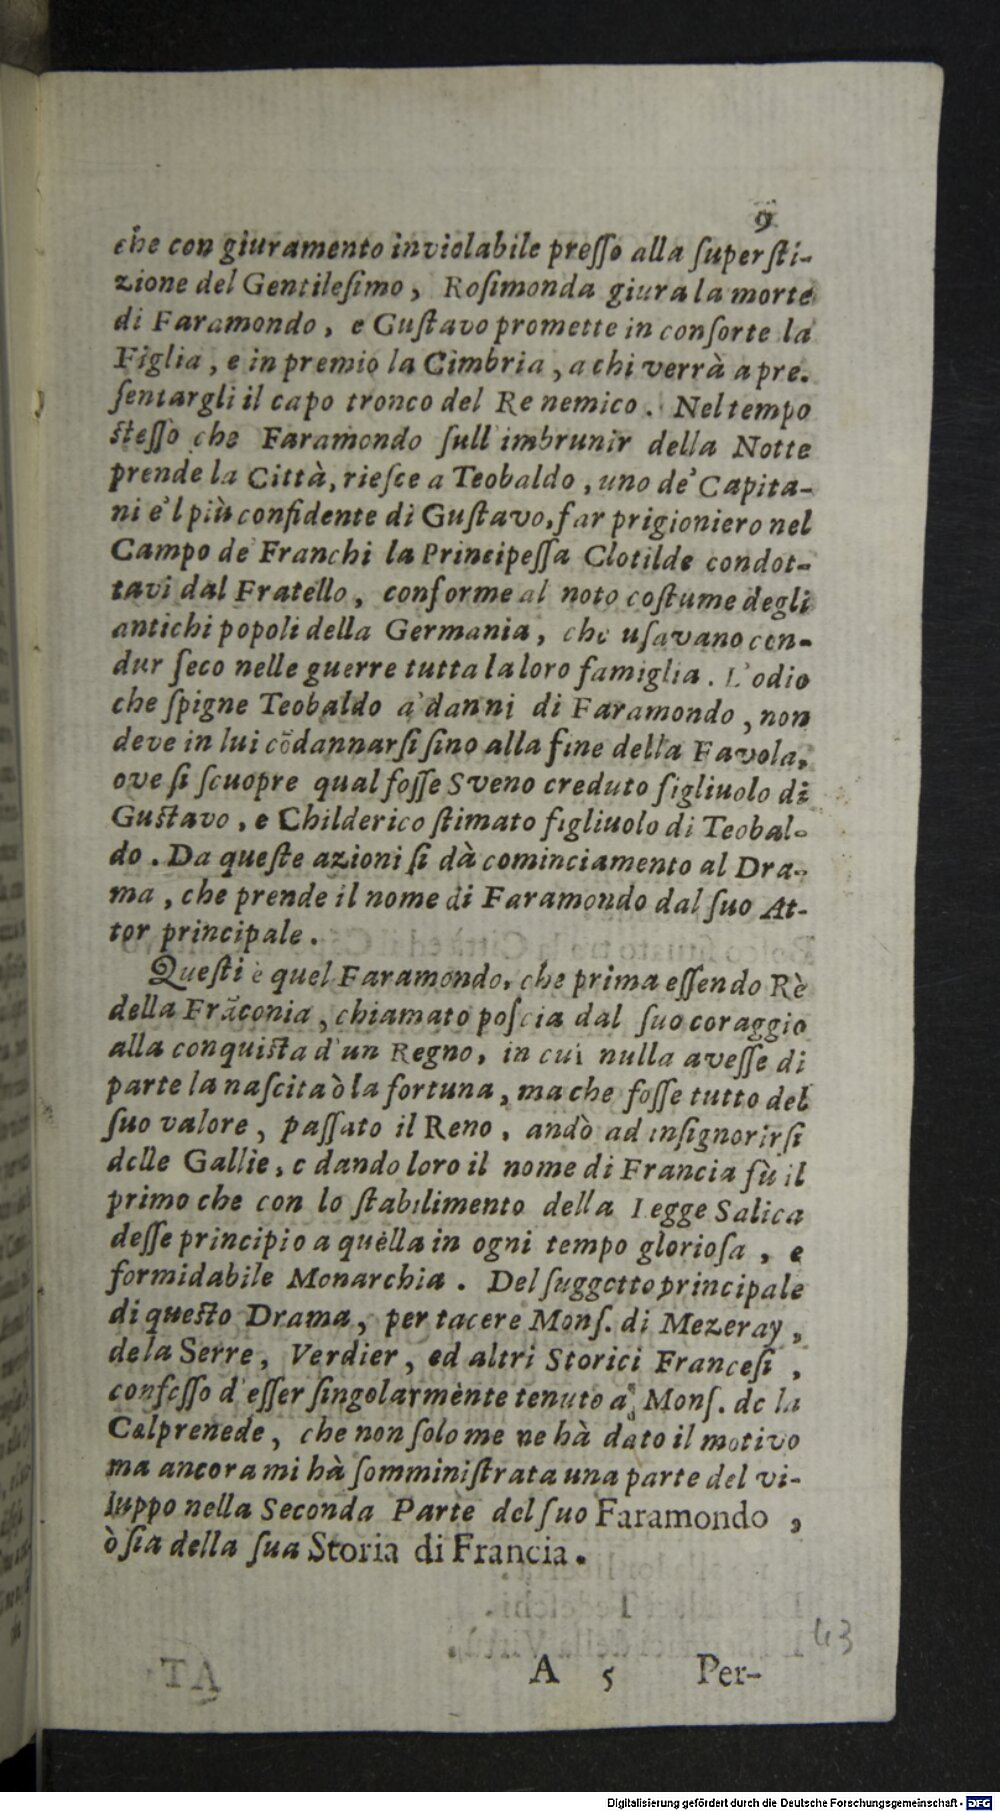 9
che con giuramento inviolabile presso alla supersti-
zione del Gentilesimo, Rosimonda giura la morte
di Faramondo, e Gustavo promette in consorte la
Figlia, e in premio la Cimbria, a chi verrà a pre.
sentargli il capo tronco del Re nemico. Nel tempo
stesso che Faramondo sull'imbrunir della Notte
prende la Città, riesce a Teobaldo, uno de' Capita-
ni e'l più confidente di Gustavo, far prigioniero nel
Campo de' Franchi la Principessa Clotilde condot-
tavi dal Fratello, conforme al noto costume degli
antichi popoli della Germania, che usavano con-
dur seco nelle guerre tutta la loro famiglia. L'odio
che spigne Teobaldo a' danni di Faramondo, non
deve in lui cõdannarsi sino alla fine della Favola,
ove si scuopre qual fosse Sveno creduto figliuolo di
Gustavo, e Childerico stimato figliuolo di Teobal-
do. Da queste azioni si dà cominciamento al Dra-
ma, che prende il nome di Faramondo dal suo At-
tor principale.
Questi è quel Faramondo, che prima essendo Rè
della Frãconia, chiamato poscia dal suo coraggio
alla conquista d'un Regno, in cui nulla avesse di
parte la nascita ò la fortuna, ma che fosse tutto del
suo valore, passato il Reno, andò ad insignorirsi
delle Gallie, e dando loro il nome di Francia fù il
primo che con lo stabilimento della Legge Salica
desse principio a quella in ogni tempo gloriosa, e
formidabile Monarchia. Del suggetto principale
di questo Drama, per tacere Mons. di Mezeray,
de la Serre, Verdier, ed altri Storici Francesi,
confesso d'esser singolarmente tenuto a' Mons. de la
Calprenede, che non solo me ne hà dato il motivo
ma ancora mi hà somministrata una parte del vi-
luppo nella Seconda Parte del suo Faramondo,
ò sia della sua Storia di Francia.
43
A 5 Per-
Digitalisierung gefördert durch die Deutsche Forschungsgemeinschaft - DFG